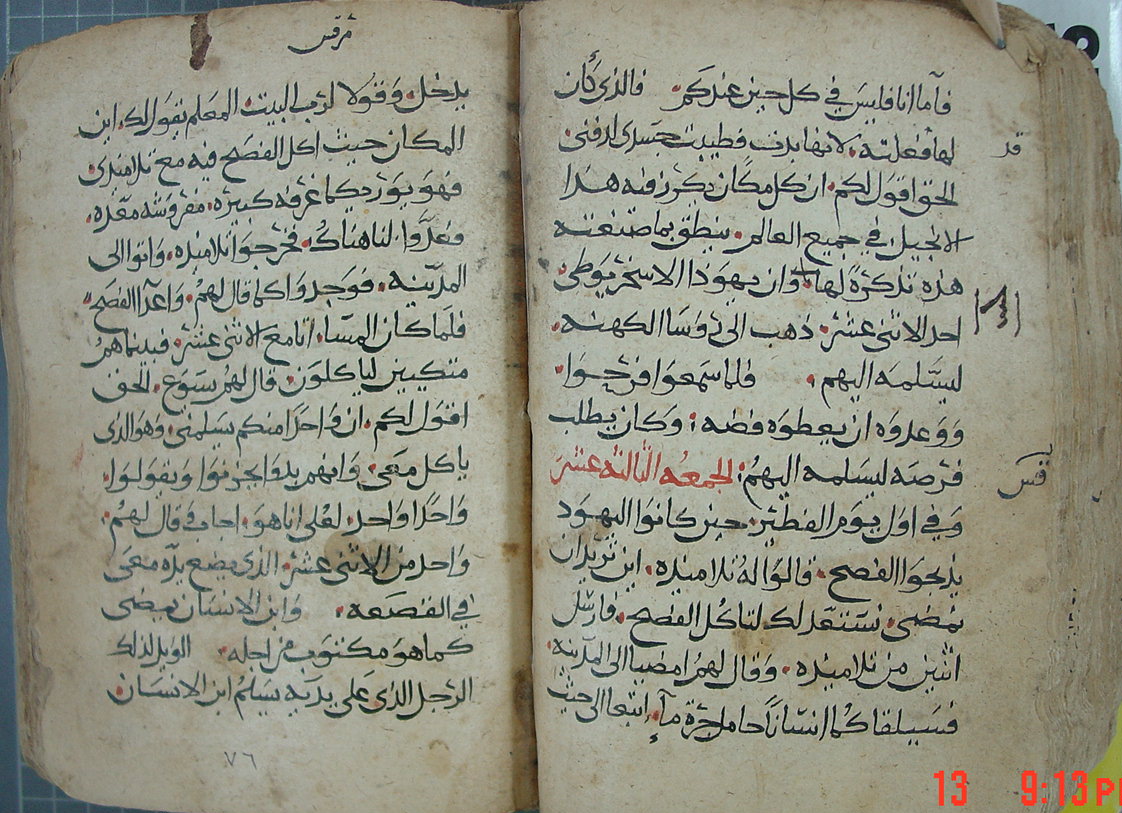 فاما انا فليس في كل حين عندكم فالذي كان
لها فعلته لانها بدت فطيبت جسدي لدفني
الحق اقول لكم ان كل مكان يكرز فيه هذا
الانجيل في جميع العالم ينطق بما صنعته
هذه تذكرة لها وان يهودا الاسخريوطي
احد الاثني عشر ذهب الى روسا الكهنه
ليسلمه اليهم فلما سمعوا فرحوا
ووعدوه ان يعطوه فضه وكان يطلب
فرصه ليسلمه اليهم الجمعه الثالثه عشر
وفي اول يوم الفطير حين كانوا اليهود
يذبحوا الفصح قالوا له تلاميذه اين تريد ان
نمضي نستعد لك لتاكل الفصح فارسل
اثنين من تلاميذه وقال لهم امضيا الى المدينه
فسيلقاكما انسانا حامل جرة مآء اتبعا الى حيث
قد
مرقس
يدخل وقولا لرب البيت المعلم يقول لك اين
المكان حيث اكل الفصح فيه مع تلاميذي
فهو يوريكما غرفه كبيره مفروشه معده
فعدوا لنا هناك فخرجوا تلاميذه واتوا الى
المدينه فوجدوا كما قال لهم واعدا الفصح
فلما كان المسا اتا مع الاثني عشر فبينما هم
متكيين لياكلون قال لهم يسوع الحق
اقول لكم ان واحدا منكم يسلمني وهو الذي
ياكل معي وانهم بدوا يحزنوا ويقولوا
واحدا واحد لعلي انا هو اجاب وقال لهم
واحد من الاثني عشر الذي يضع يده معي
في القصعه وابن الانسان يمضي
كما هو مكتوب من اجله الويل لذلك
الرجل الذي على يديه يسلم ابن الانسان
٧٦
13 9:13